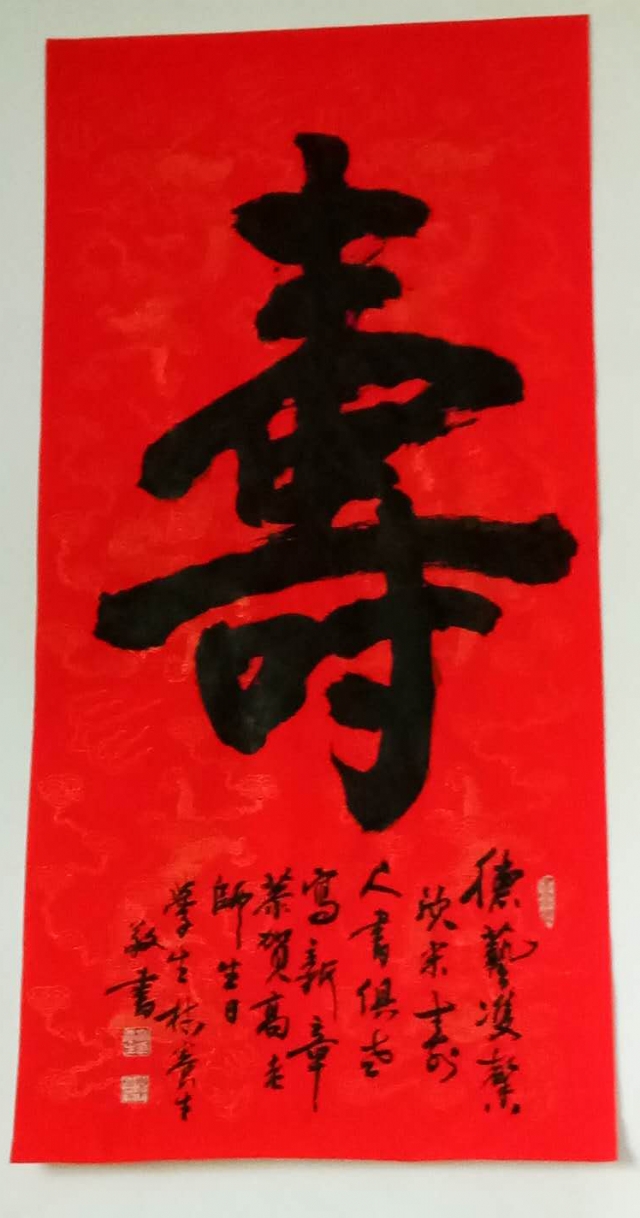 壽
德藝雙馨
欣米壽
人書俱老
寫新章
恭賀高老
師生日
學生林養生
敬書